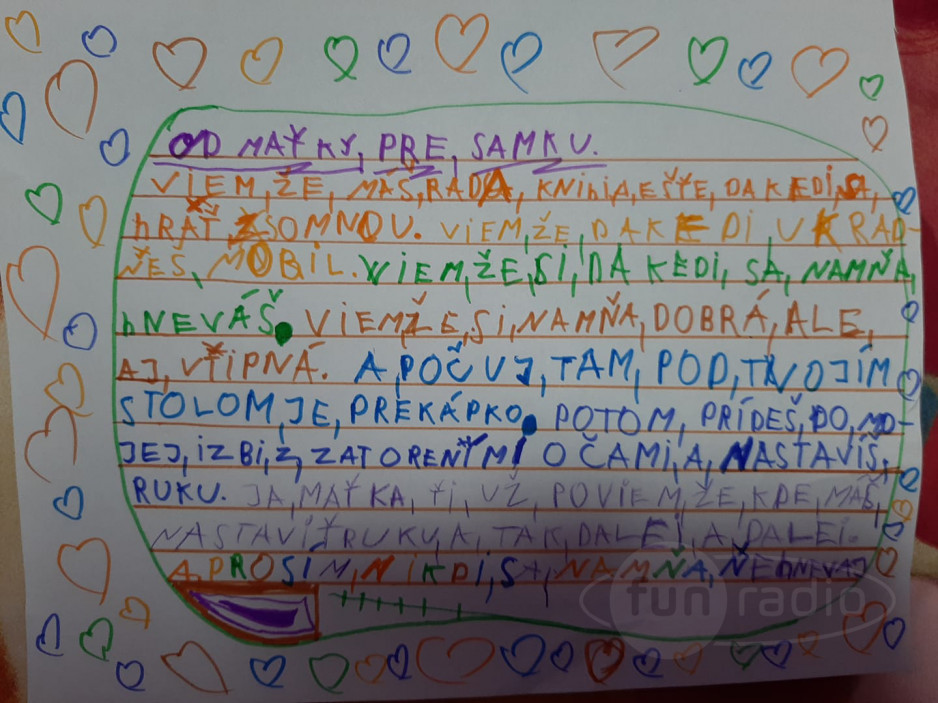 OD MAŤKY, PRE, SAMKU.
VIEM, ŽE, MÁŠ, RADA, KNihiA, EŠŤE, DAKEDI, SA,
hRAŤ ZSOMNOU. VIEM, ŽE, DAKEDI, UKRAD-
ŇEŠ, MOBIL. VIEM, ŽE, SI, DAKEDI, SA, NAMŇA,
hNEVÁŠ. VIEMŽE, SI, NAMŇA, DOBRÁ, ALE,
AJ, VŤIPNÁ. A, POČUJ, TAM, POD, TVOJÍM
STOLOM, JE, PREKÁPKO. POTOM, PRÍDEŠ, DO, MO-
JEJ, IZBI, Z, ZATORENÝMI OČAMI, A, NASTAVÍŠ,
RUKU. JA, MAŤKA, ŤI, UŽ, POVIEM, ŽE, KDE, MÁŠ,
NASTAVIŤ RUKU, A, TAK, DALEJ, A, DALEJ.
A, PROSÍM, NIKDI, SA, NAMŇA, ŇEhNEVAJ
fun radio